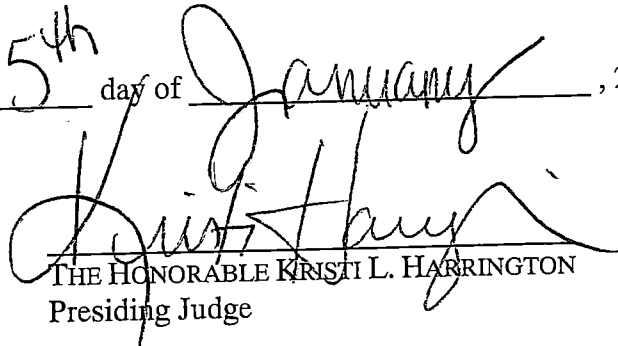 5th day of January, 2
Kristi Harrington
THE HONORABLE KRISTI L. HARRINGTON
Presiding Judge